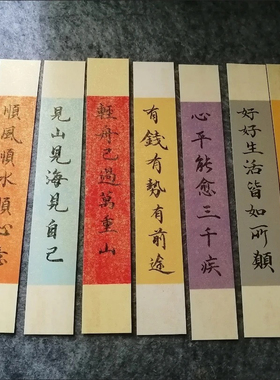 順風順水順心意
見山見海見自己
輕舟已過萬重山
有錢有勢有前途
心平能愈三千疾
好好生活皆如所願